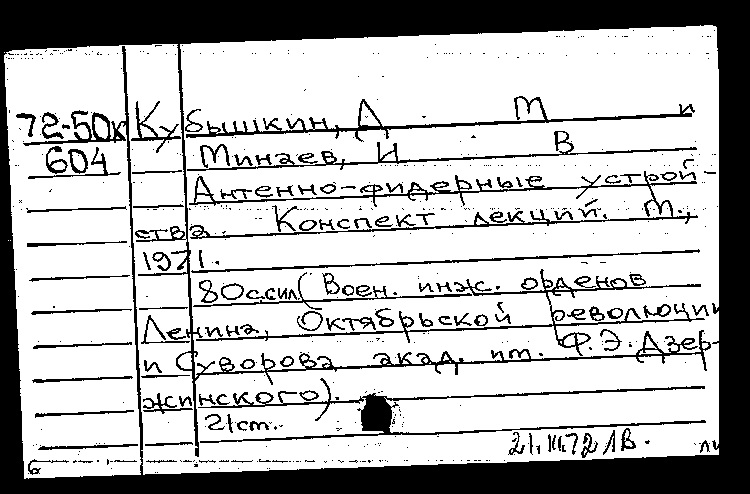 72-50к Кубышкин, А М и
604 Минаев, И В
Антенно-фидерные устрой-
ства. Конспект лекций. М.,
1971.
80с.с ил. (Воен. инж. орденов
Ленина, Октябрьской революции
и Суворова акад. им. Ф.Э. Дзер-
жинского).
21 cm.
21.III.72
6